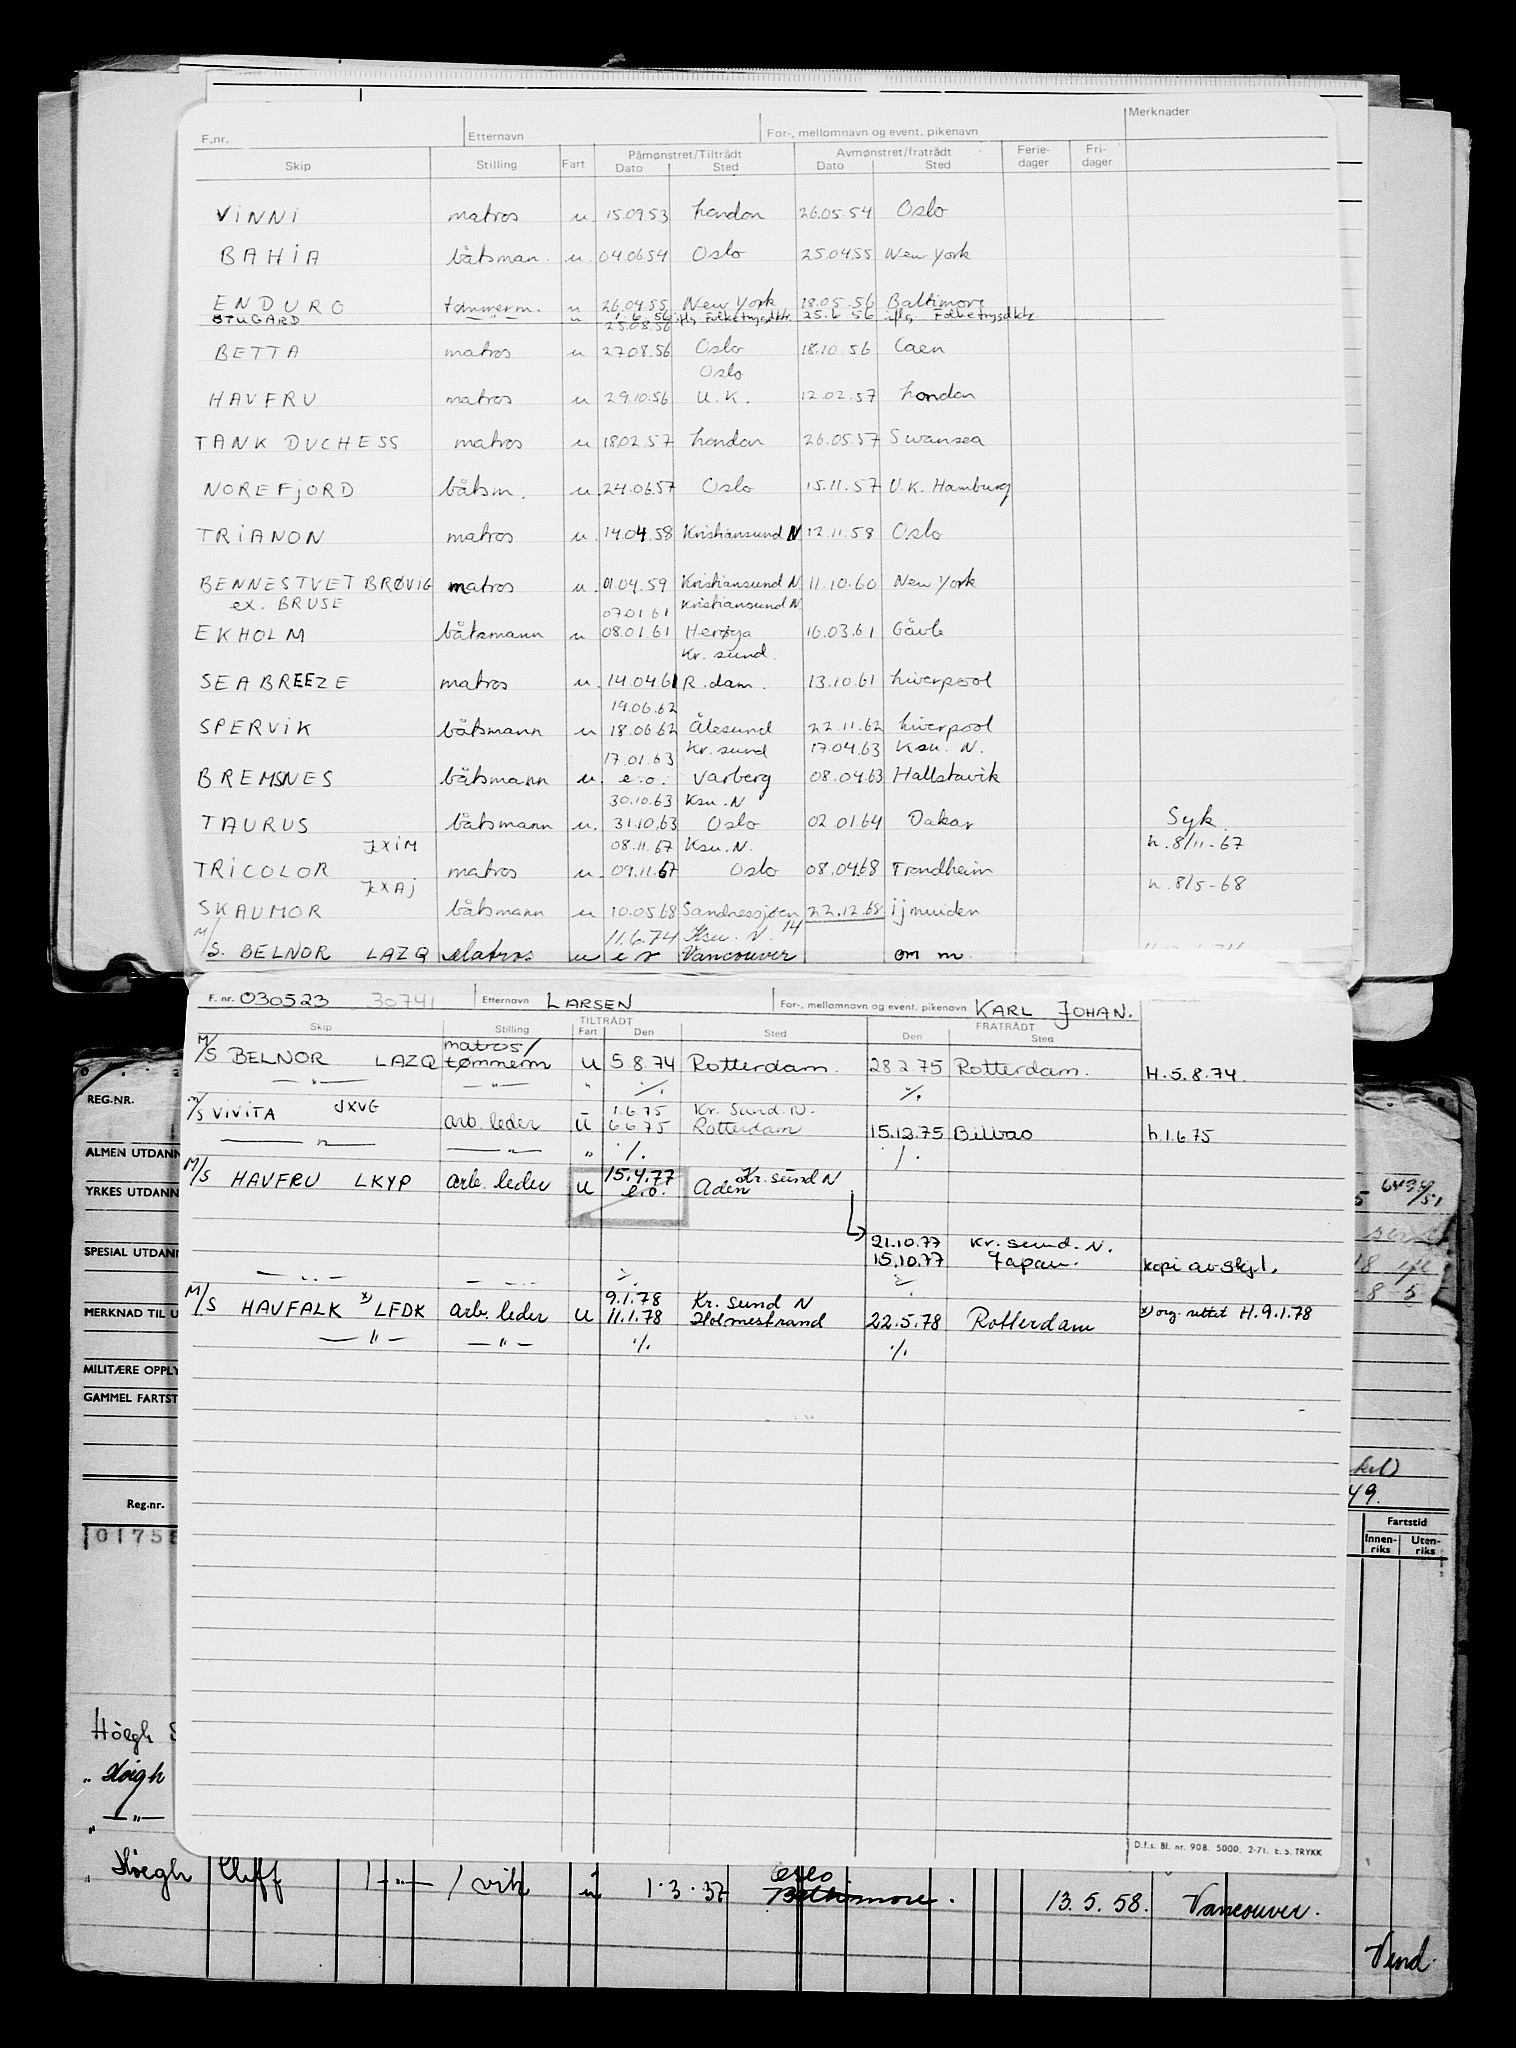 Merknader
F.nr. Etternavn For-, mellomnavn og event. pikenavn
Skip Stilling Fart Påmønstret/Tiltrådt Dato Sted Avmønstret/fratrådt Dato Sted Ferie-dager Fri-dager
VINNI matros u 15.09.53 London 26.05.54 Oslo
BAHIA båtsman. u. 04.06.54 Oslo 25.04.55 New York
ENDURO tømmerm. u 26.04.55 New York 18.05.56 Baltimore
STUGARD —"— u 1.6.56 iflg Folketrygdktr. 25.6.56 iflg Folketrygdktr
25.08.56
BETTA matros u 27.08.56 Oslo 18.10.56 Caen
Oslo
HAVFRU matros u 29.10.56 U.K. 12.02.57 London
TANK DUCHESS matros u 18.02.57 London 26.05.57 Swansea
NOREFJORD båtsm. u 24.06.57 Oslo 15.11.57 U.K. Hamburg
TRIANON matros u. 14.04.58 Kristiansund N 12.11.58 Oslo
BENNESTVET BRØVIG matros u. 01.04.59 Kristiansund N 11.10.60 New York
ex. BRUSE 07.01.61 Kristiansund N.
EKHOLM båtsmann u 08.01.61 Herøya 16.03.61 Gävle
Kr. sund.
SEABREEZE matros u. 14.04.61 R.dam. 13.10.61 Liverpool
19.06.62
SPERVIK båtsmann u 18.06.62 Ålesund 22.11.62 Liverpool
17.01.63 Kr. sund 17.04.63 Ksu. N.
BREMSNES båtsmann u. e.o. Varberg 08.04.63 Hallstavik
30.10.63 Ksu. N
TAURUS båtsmann u. 31.10.63 Oslo 02.01.64 Dakar Syk.
JXIM 08.11.67 Ksu. N. h. 8/11-67
TRICOLOR matros u. 09.11.67 Oslo 08.04.68 Trondheim
JXAJ h. 8/5-68
SKAUMOR båtsmann u 10.05.68 Sandnessjøen 22.12.68 Ijmuiden
11.6.74 Ksu. N. 14
M/S. BELNOR LAZQ Matros u Vancouver om m.
F. nr. 030523 30741 Etternavn LARSEN For-, mellomnavn og event. pikenavn KARL JOHAN.
Skip Stilling TILTRÅDT Fart Den Sted FRATRÅDT Den Sted
matros/
M/S BELNOR LAZQ tømmerm u 5.8.74 Rotterdam. 28.2.75 Rotterdam. H.5.8.74.
—"— —"— " ./. ./.
M/S VIVITA JXVG 1.6.75 Kr. Sund. N.
arb. leder u 6.6.75 Rotterdam 15.12.75 Bilbao h.1.6.75
—"— —"— " ./. ./.
M/S HAVFRU LKYP arb. leder u 15.4.77 Kr. sund N
e.o. Aden
21.10.77 Kr. sund. N.
15.10.77 Japan. kopi av skjl.
—"— —"— ./. ./.
M/S HAVFALK x) LFDK arb. leder u 9.1.78 Kr. Sund N
11.1.78 Holmestrand 22.5.78 Rotterdam x) org. rettet H.9.1.78
—"— —"— ./. ./.
D.f.s. Bl. nr. 908. 5000. 2-71. E. S. TRYKK
REG.NR.
ALMEN UTDANN
YRKES UTDANN
SPESIAL UTDANN
MERKNAD TIL U
MILITÆRE OPPLY
GAMMEL FARTST
49.
Reg.nr. Fartstid
Innen-riks Uten-riks
0175
Höegh S
" Höegh
" —"—
" Höegh Cliff —"— u 1.3.37 Oslo Baltimore. 13.5.58. Vancouver.
Vend.